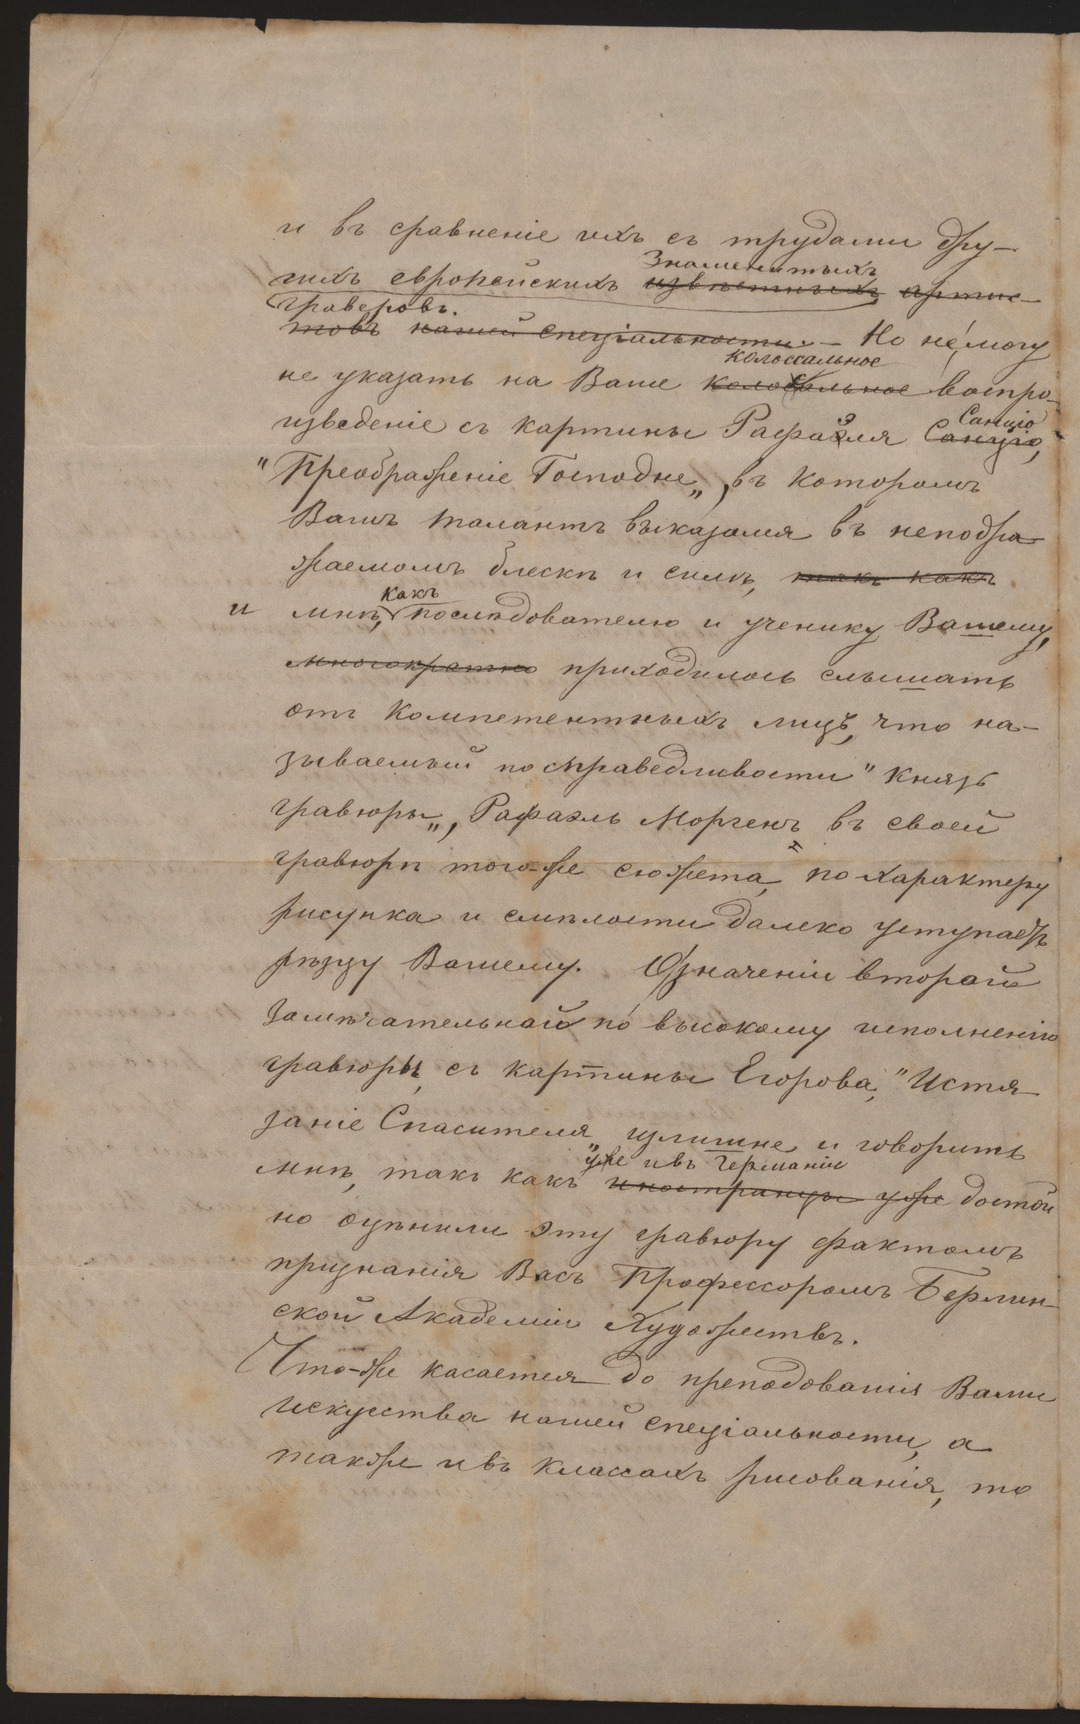 и въ сравненіе ихъ съ трудами дру-
Знаменитыхъ
гихъ европейскихъ извѣстныхъ артис-
граверовъ.
товъ нашей спеціальности. — Но не могу
колоссальное
не указать на Ваше колоссальное воспро-
изведеніе съ картины Рафаэля Санціо Санціо,
"Преображеніе Господне„, въ которомъ
Вашъ талантъ выказался въ неподра-
жаемомъ блескѣ и силѣ, такъ какъ
какъ
и мнѣ, послѣдователю и ученику Вашему,
многократно приходилось слышать
отъ компетентныхъ лицъ, что на-
зываемый по справедливости "Князь
гравюры„, Рафаэль Моргенъ въ своей
гравюрѣ того-же сюжета, по характеру
рисунка и смѣлости далеко уступаетъ
рѣзцу Вашему. О значеніи второй
замѣчательной по высокому исполненію
гравюры, съ картины Егорова, "Истя
заніе Спасителя„ излишне и говорить
уже и въ Германіи
мнѣ, такъ какъ иностранцы уже достой
но оцѣнили эту гравюру фактомъ
признанія Васъ Профессоромъ Берлин-
ской Академіи Художествъ.
Что-же касается до преподаванія Вами
искусства нашей спеціальности, а
также и въ классахъ рисованія, то